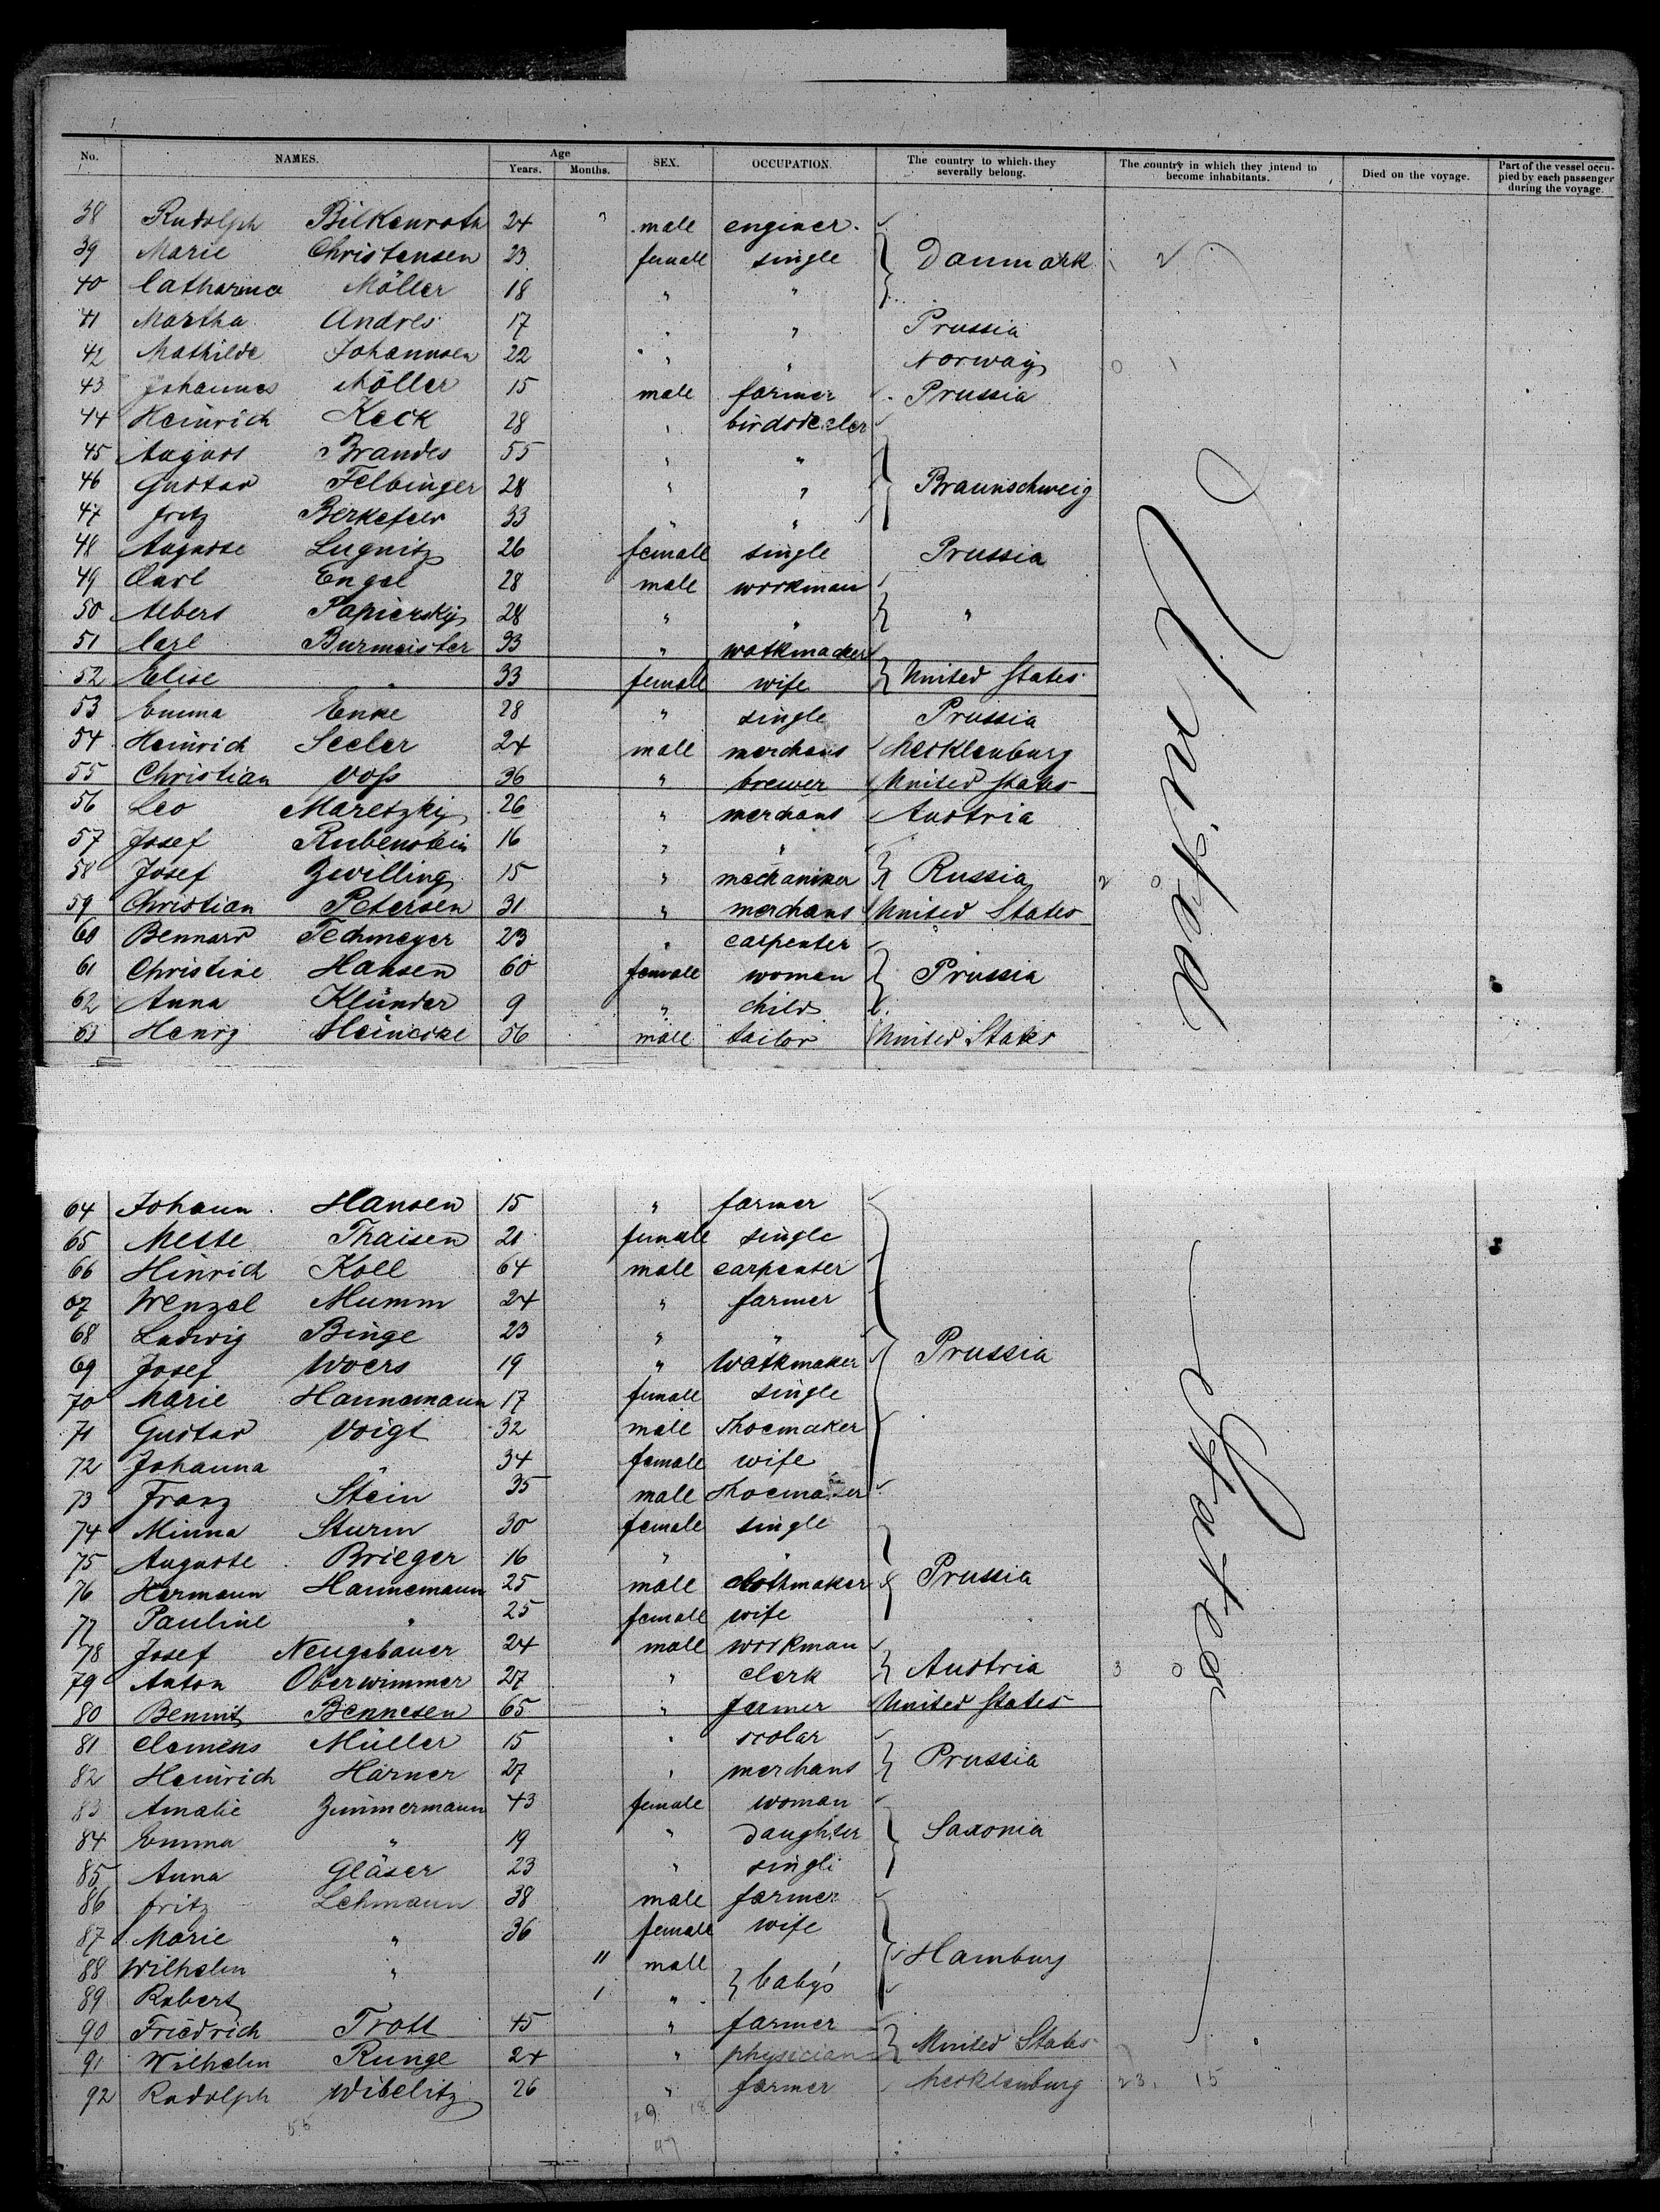 No. NAMES. Age Years. Months. SEX. OCCUPATION. The country to which they severally belong. The country in which they intend to become inhabitants. Died on the voyage. Part of the vessel occupied by each passenger during the voyage.
38 Rudolph Bilkenroth 24 male enginer
39 Marie Christensen 23 female single Danmark 2
40 Catharina Möller 18 " "
41 Martha Andres 17 " " Prussia
42 Mathilde Johannsen 22 " " Norway 0 1
43 Johannes Möller 15 male farmer Prussia
44 Heinrich Keck 28 "
45 August Brandes 55 " "
46 Gustav Felbinger 28 " " Braunschweig
47 Fritz Berkefeld 33 " "
48 Auguste Lugnitz 26 female single Prussia
49 Carl Engel 28 male workman
50 Albert Papiersky 28 " " "
51 Carl Burmeister 33 " watkmacker
52 Elise " 33 female wife United States
53 Emma Enke 28 " single Prussia
54 Heinrich Seeler 24 male merchant Mecklenburg
55 Christian Voss 36 " brewer United States
56 Leo Maretzky 26 " merchant Austria
57 Josef Rubenstein 16 " "
58 Josef Zwilling 15 " mechaniker Russia 2 0
59 Christian Petersen 31 " merchant United States
60 Bennard Techmeyer 23 " carpenter
61 Christine Hansen 60 female woman Prussia
62 Anna Klünder 9 " child
63 Henry Heinecke 56 male tailor United States
64 Johann Hansen 15 " farmer
65 Mette Thaisen 21 female single
66 Hinrich Koll 64 male carpenter
67 Wenzel Mumm 24 " farmer
68 Ludwig Binge 23 " "
69 Josef Woers 19 " Watkmaker Prussia
70 Marie Hannemann 17 female single
71 Gustav Voigt 32 male shoemaker
72 Johanna " 34 female wife
73 Franz Stein 35 male shoemaker
74 Minna Sturm 30 female single
75 Auguste Brieger 16 " "
76 Hermann Hannemann 25 male clothmaker Prussia
77 Pauline " 25 female wife
78 Josef Neugebauer 24 male workman
79 Anton Oberwimmer 27 " clerk Austria 3 0
80 Bennit Bennesen 65 " farmer United States
81 Clemens Müller 15 " scolar
82 Heinrich Härner 27 " merchant Prussia
83 Amalie Zimmermann 43 female woman
84 Emma " 19 " daughter Saxonia
85 Anna Gläser 23 " single
86 Fritz Lehmann 38 male farmer
87 Marie " 36 female wife
88 Wilhelm " 11 male baby's Hamburg
89 Robert 1 "
90 Friedrich Trott 45 " farmer
91 Wilhelm Runge 24 " physician United States
92 Rudolph Wibelitz 26 " farmer Mecklenburg 23 15
United
States
55 29 18
47